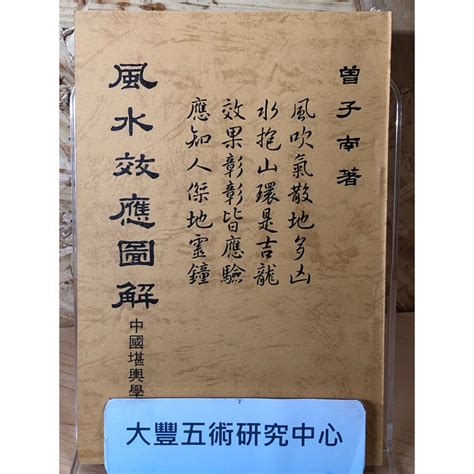 曾子南著
風吹氣散地多凶
水抱山環是吉龍
效果彰彰皆應驗
應知人傑地靈鐘
風水效應圖解
中國堪輿學
大豐五術研究中心